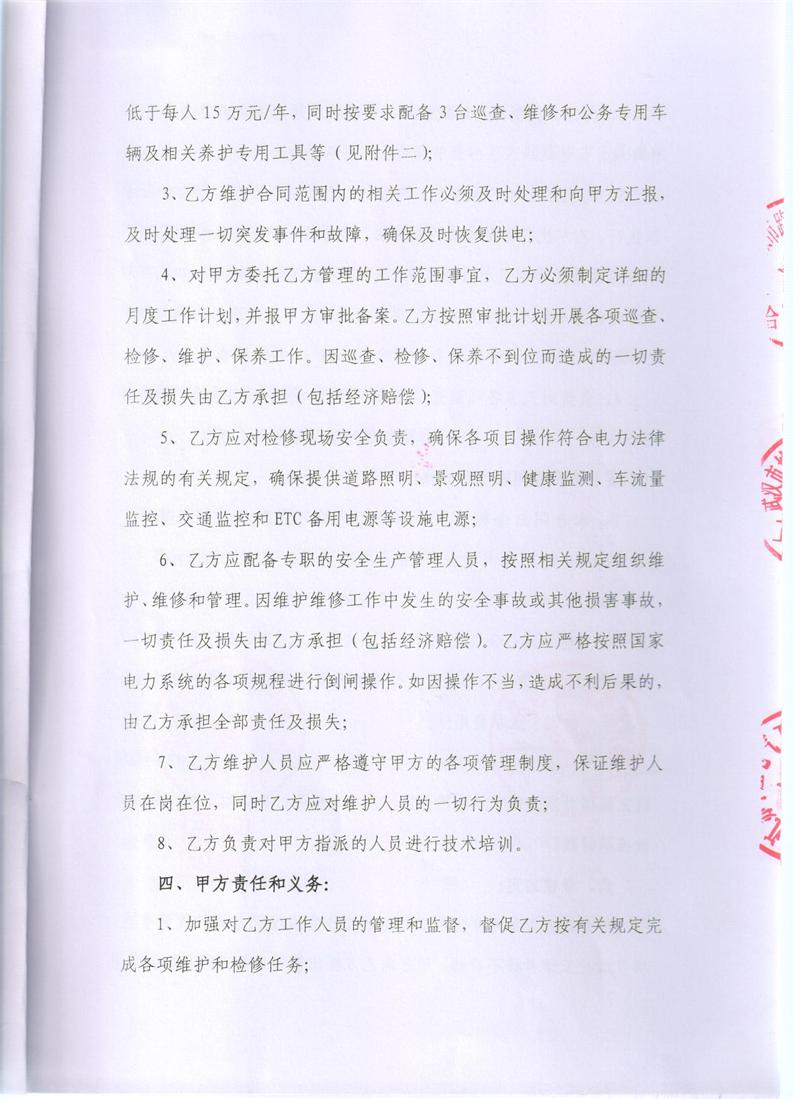 低于每人15万元/年，同时按要求配备3台巡查、维修和公务专用车
辆及相关养护专用工具等（见附件二）；
3、乙方维护合同范围内的相关工作必须及时处理和向甲方汇报，
及时处理一切突发事件和故障，确保及时恢复供电；
4、对甲方委托乙方管理的工作范围事宜，乙方必须制定详细的
月度工作计划，并报甲方审批备案。乙方按照审批计划开展各项巡查、
检修、维护、保养工作。因巡查、检修、保养不到位而造成的一切责
任及损失由乙方承担（包括经济赔偿）；
5、乙方应对检修现场安全负责，确保各项目操作符合电力法律
法规的有关规定，确保提供道路照明、景观照明、健康监测、车流量
监控、交通监控和ETC备用电源等设施电源；
6、乙方应配备专职的安全生产管理人员，按照相关规定组织维
护、维修和管理。因维护维修工作中发生的安全事故或其他损害事故，
一切责任及损失由乙方承担（包括经济赔偿）。乙方应严格按照国家
电力系统的各项规程进行倒闸操作。如因操作不当，造成不利后果的，
由乙方承担全部责任及损失；
7、乙方维护人员应严格遵守甲方的各项管理制度，保证维护人
员在岗在位，同时乙方应对维护人员的一切行为负责；
8、乙方负责对甲方指派的人员进行技术培训。
四、甲方责任和义务：
1、加强对乙方工作人员的管理和监督，督促乙方按有关规定完
成各项维护和检修任务；
武汉市